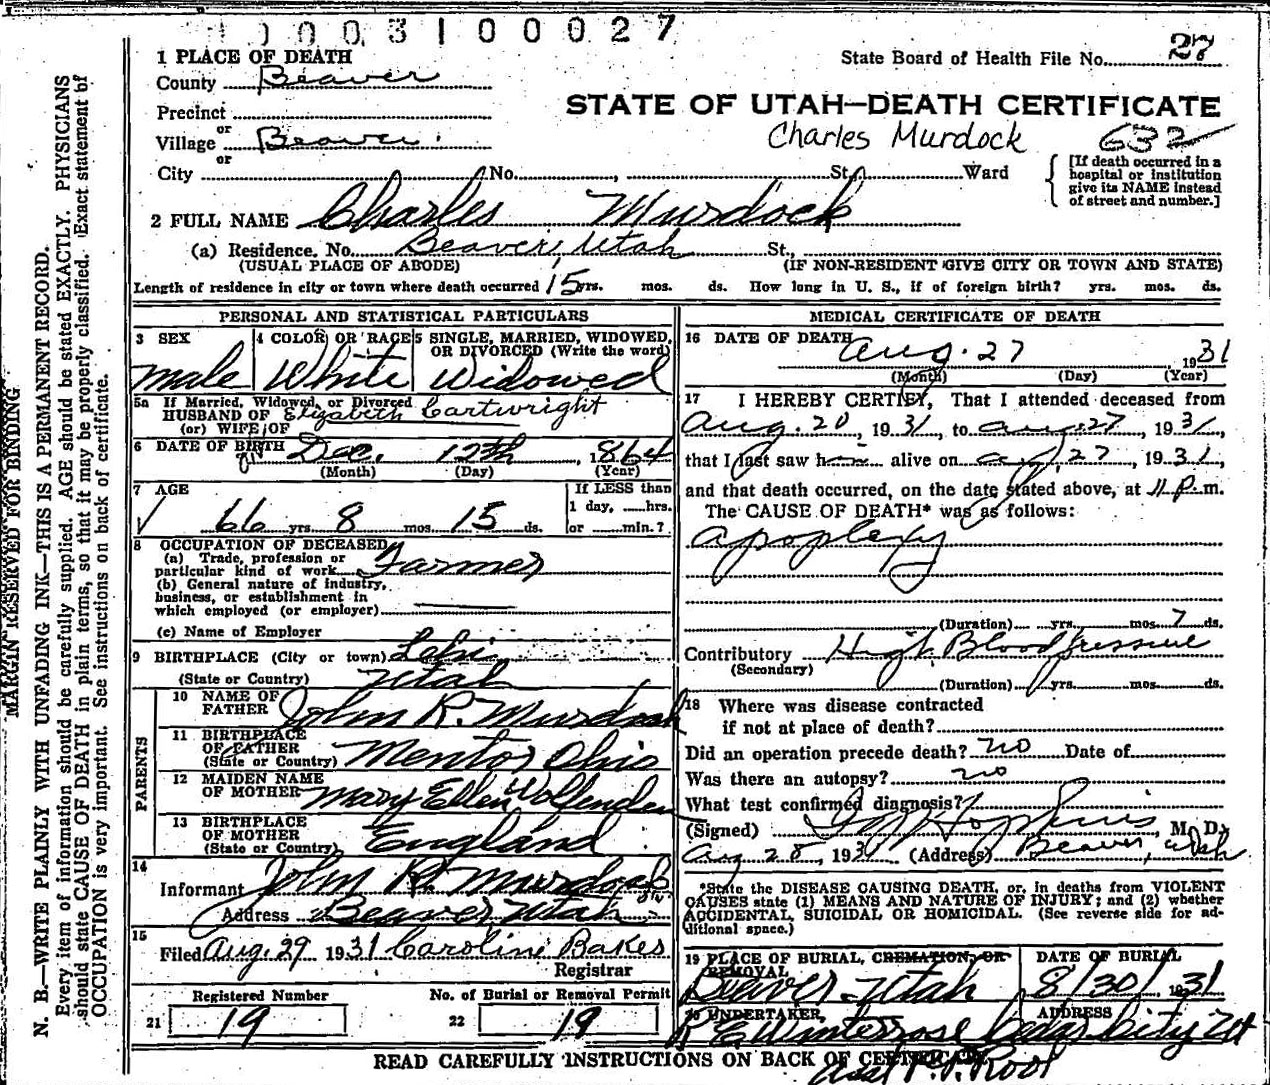 0003100027
1 PLACE OF DEATH
State Board of Health File No. 27
County Beaver
STATE OF UTAH—DEATH CERTIFICATE
Precinct
or
Village Beaver
Charles Murdock 632
or
City No. , St. Ward
[If death occurred in a hospital or institution give its NAME instead of street and number.]
2 FULL NAME Charles Murdock
(a) Residence. No. Beaver, Utah St.,
(USUAL PLACE OF ABODE) (IF NON-RESIDENT GIVE CITY OR TOWN AND STATE)
Length of residence in city or town where death occurred 15 yrs. mos. ds. How long in U. S., if of foreign birth? yrs. mos. ds.
PERSONAL AND STATISTICAL PARTICULARS
3 SEX 4 COLOR OR RACE 5 SINGLE, MARRIED, WIDOWED, OR DIVORCED (Write the word)
male White Widowed
5a If Married, Widowed, or Divorced
HUSBAND OF Elizabeth Cartwright
(or) WIFE OF
6 DATE OF BIRTH Dec. 12th, 1864
(Month) (Day) (Year)
7 AGE If LESS than
66 yrs. 8 mos. 15 ds. 1 day, hrs.
or min.?
8 OCCUPATION OF DECEASED
(a) Trade, profession or
particular kind of work Farmer
(b) General nature of industry,
business, or establishment in
which employed (or employer)
(c) Name of Employer
9 BIRTHPLACE (City or town) Lehi
(State or Country) Utah
PARENTS
10 NAME OF FATHER John R. Murdock
11 BIRTHPLACE OF FATHER (State or Country) Mentor Ohio
12 MAIDEN NAME OF MOTHER Mary Ellen Wolfenden
13 BIRTHPLACE OF MOTHER (State or Country) England
14
Informant John R. Murdock
Address Beaver Utah
15
Filed Aug. 29 1931 Caroline Bakes
Registrar
Registered Number No. of Burial or Removal Permit
21 19 22 19
MEDICAL CERTIFICATE OF DEATH
16 DATE OF DEATH Aug. 27 1931
(Month) (Day) (Year)
17 I HEREBY CERTIFY, That I attended deceased from
Aug. 20, 1931, to Aug. 27, 1931,
that I last saw him alive on Aug. 27, 1931,
and that death occurred, on the date stated above, at 11 p.m.
The CAUSE OF DEATH* was as follows:
apoplexy
(Duration) yrs. mos. 7 ds.
Contributory High Blood Pressure
(Secondary)
(Duration) yrs. mos. ds.
18 Where was disease contracted
if not at place of death?
Did an operation precede death? no Date of
Was there an autopsy? no
What test confirmed diagnosis?
(Signed) Hopkins, M. D.
Aug 28, 1931 (Address) Beaver, Utah
*State the DISEASE CAUSING DEATH, or, in deaths from VIOLENT
CAUSES state (1) MEANS AND NATURE OF INJURY; and (2) whether
ACCIDENTAL, SUICIDAL OR HOMICIDAL. (See reverse side for ad-
ditional space.)
19 PLACE OF BURIAL, CREMATION, OR REMOVAL DATE OF BURIAL
Beaver Utah 8/30/1931
20 UNDERTAKER ADDRESS
R E Winterrose Cedar City Ut
READ CAREFULLY INSTRUCTIONS ON BACK OF CERTIFICATE
MARGIN RESERVED FOR BINDING
N. B.—WRITE PLAINLY WITH UNFADING INK—THIS IS A PERMANENT RECORD.
Every item of information should be carefully supplied. AGE should be stated EXACTLY. PHYSICIANS
should state CAUSE OF DEATH in plain terms, so that it may be properly classified. Exact statement of
OCCUPATION is very important. See instructions on back of certificate.